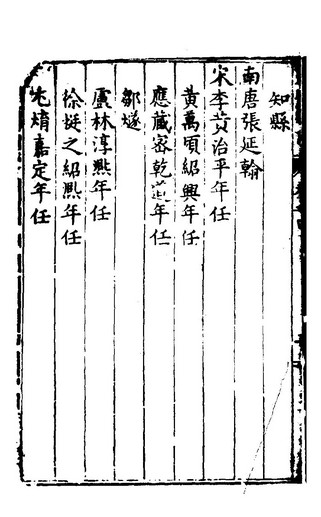 知縣
南唐張延翰
宋李黃治平年任
黃萬頃紹興年任
應藏密乾道年任
鄒燧
盧林淳熙年任
徐挺之紹熙年任
嘉定年任